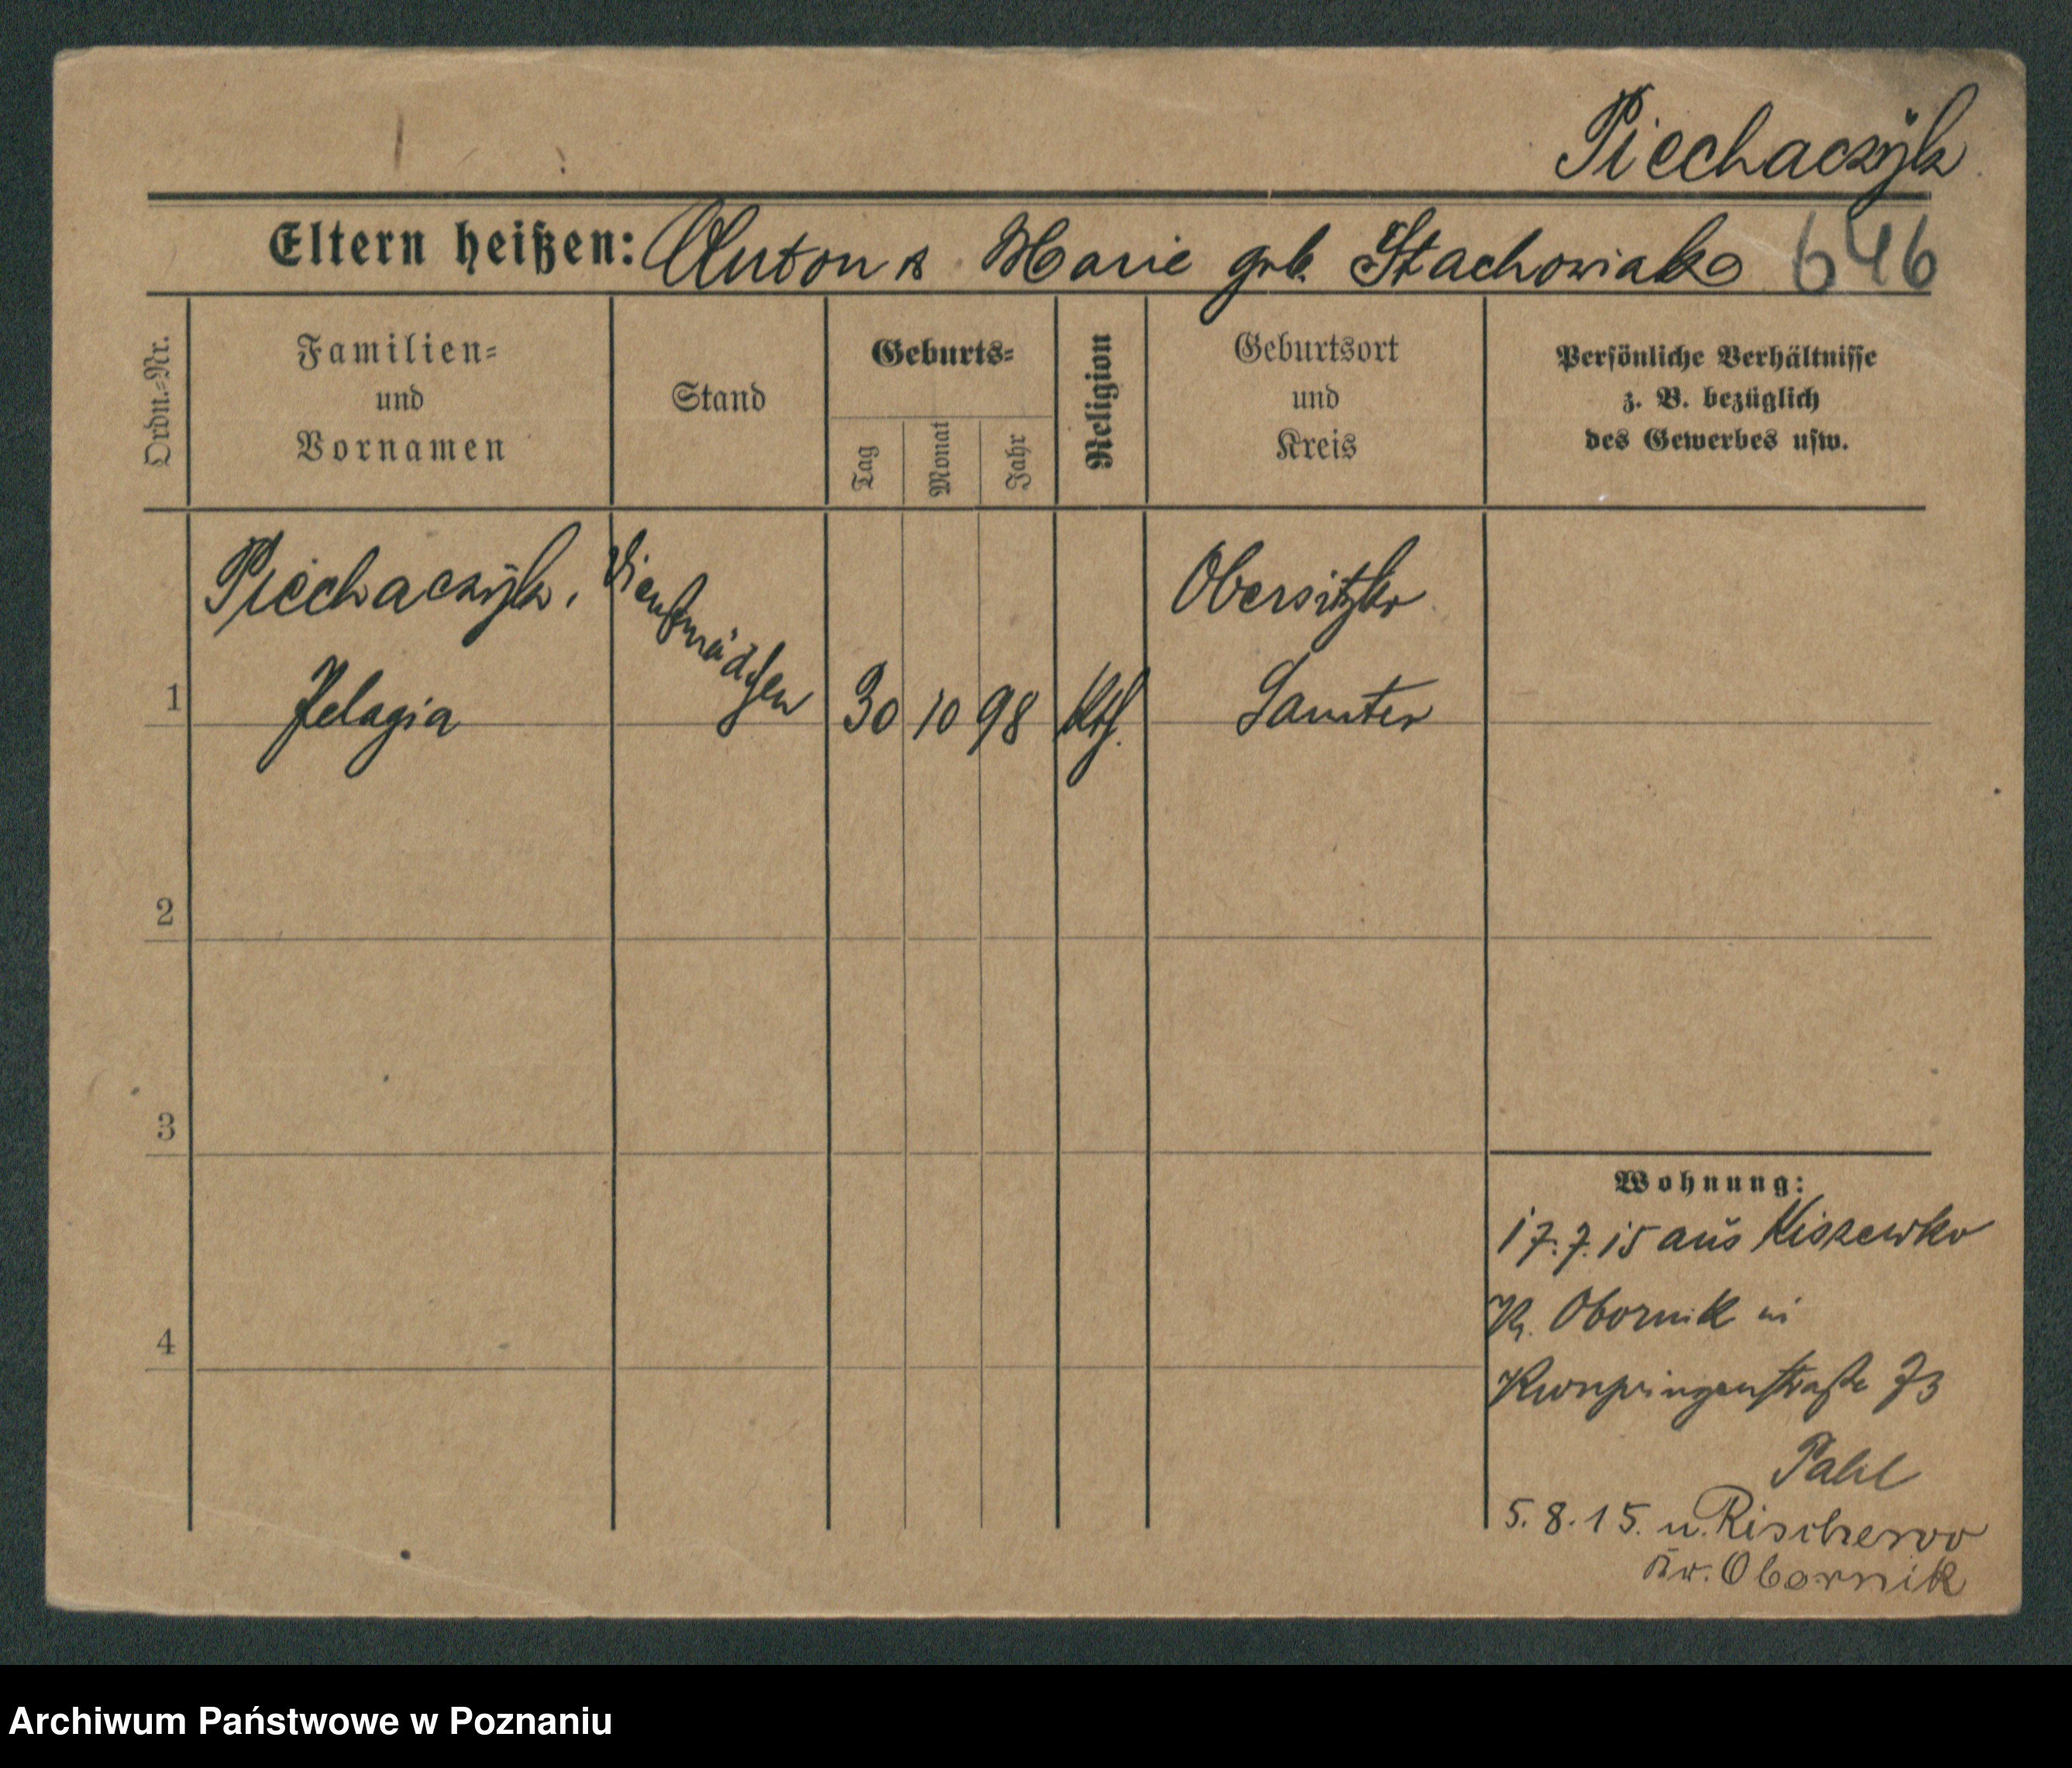 Piechaczÿk
Eltern heißen: Anton & Marie geb. Stachowiak 646
Ordn.-Nr.
Familien-
und
Vornamen
Stand
Geburts-
Tag
Monat
Jahr
Religion
Geburtsort
und
Kreis
Persönliche Verhältnisse
z. B. bezüglich
des Gewerbes usw.
Piechaczÿk, Dienstmädchen Obersitzko
1 Pelagia 30 10 98 kth. Samter
2
3
4
Wohnung:
17.7.15 aus Kiszewko
Kr. Obornik in
Kronprinzenstraße 73
Pahl
5.8.15. n. Rischewo
Kr. Obornik
Archiwum Państwowe w Poznaniu